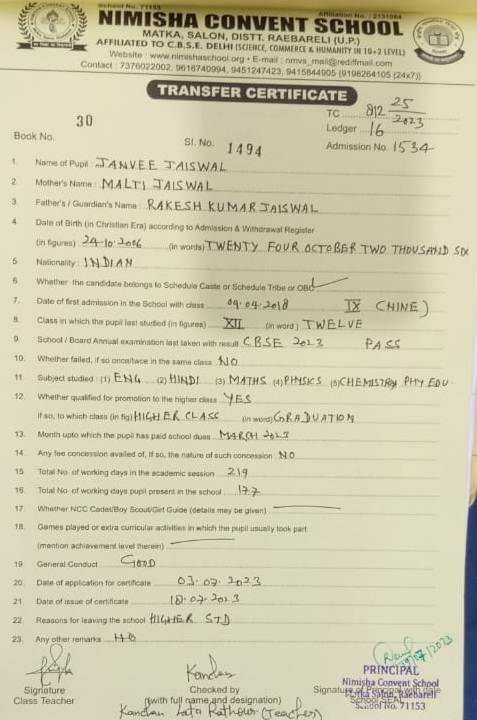 School No. 71153
Affiliation No. : 2131984
NIMISHA CONVENT SCHOOL
MATKA, SALON, DISTT. RAEBARELI (U.P.)
AFFILIATED TO C.B.S.E. DELHI (SCIENCE, COMMERCE & HUMANITY IN 10+2 LEVEL)
Website : www.nimishaschool.org • E-mail : nmvs_mail@rediffmail.com
Contact : 7376022002, 9616740994, 9451247423, 9415844905 (9198264105 (24x7))
TRANSFER CERTIFICATE
TC 812 25/2023
Ledger 16
Book No. 30 Sl. No. 1494 Admission No. 1534
1. Name of Pupil : JANVEE JAISWAL
2. Mother's Name : MALTI JAISWAL
3. Father's / Guardian's Name : RAKESH KUMAR JAISWAL
4. Date of Birth (in Christian Era) according to Admission & Withdrawal Register
(in figures) 24-10-2006 (in words) TWENTY FOUR OCTOBER TWO THOUSAND SIX
5. Nationality : INDIAN
6. Whether the candidate belongs to Schedule Caste or Schedule Tribe or OBC ✓
7. Date of first admission in the School with class 09.04.2018 IX (NINE)
8. Class in which the pupil last studied (in figures) XII (in word) TWELVE
9. School / Board Annual examination last taken with result C.B.S.E 2023 PASS
10. Whether failed, if so once/twice in the same class NO
11. Subject studied : (1) ENG (2) HINDI (3) MATHS (4) PHYSICS (5) CHEMISTRY PHY EDU
12. Whether qualified for promotion to the higher class YES
if so, to which class (in fig) HIGHER CLASS (in word) GRADUATION
13. Month upto which the pupil has paid school dues MARCH 2023
14. Any fee concession availed of, If so, the nature of such concession NO
15. Total No. of working days in the academic session 219
16. Total No. of working days pupil present in the school 177
17. Whether NCC Cadet/Boy Scout/Girl Guide (details may be given)
18. Games played or extra curricular activities in which the pupil usually took part
(mention achievement level therein)
19. General Conduct GOOD
20. Date of application for certificate 03.07.2023
21. Date of issue of certificate 18.07.2023
22. Reasons for leaving the school HIGHER STD
23. Any other remarks NO
19/07/2023
PRINCIPAL
Nimisha Convent School
Matka Salon, Raebareli
School No. 71153
Signature
Class Teacher
Checked by
(with full name and designation)
Kandan Lata Rathour (Teacher)
Signature of Principal with date
School Seal